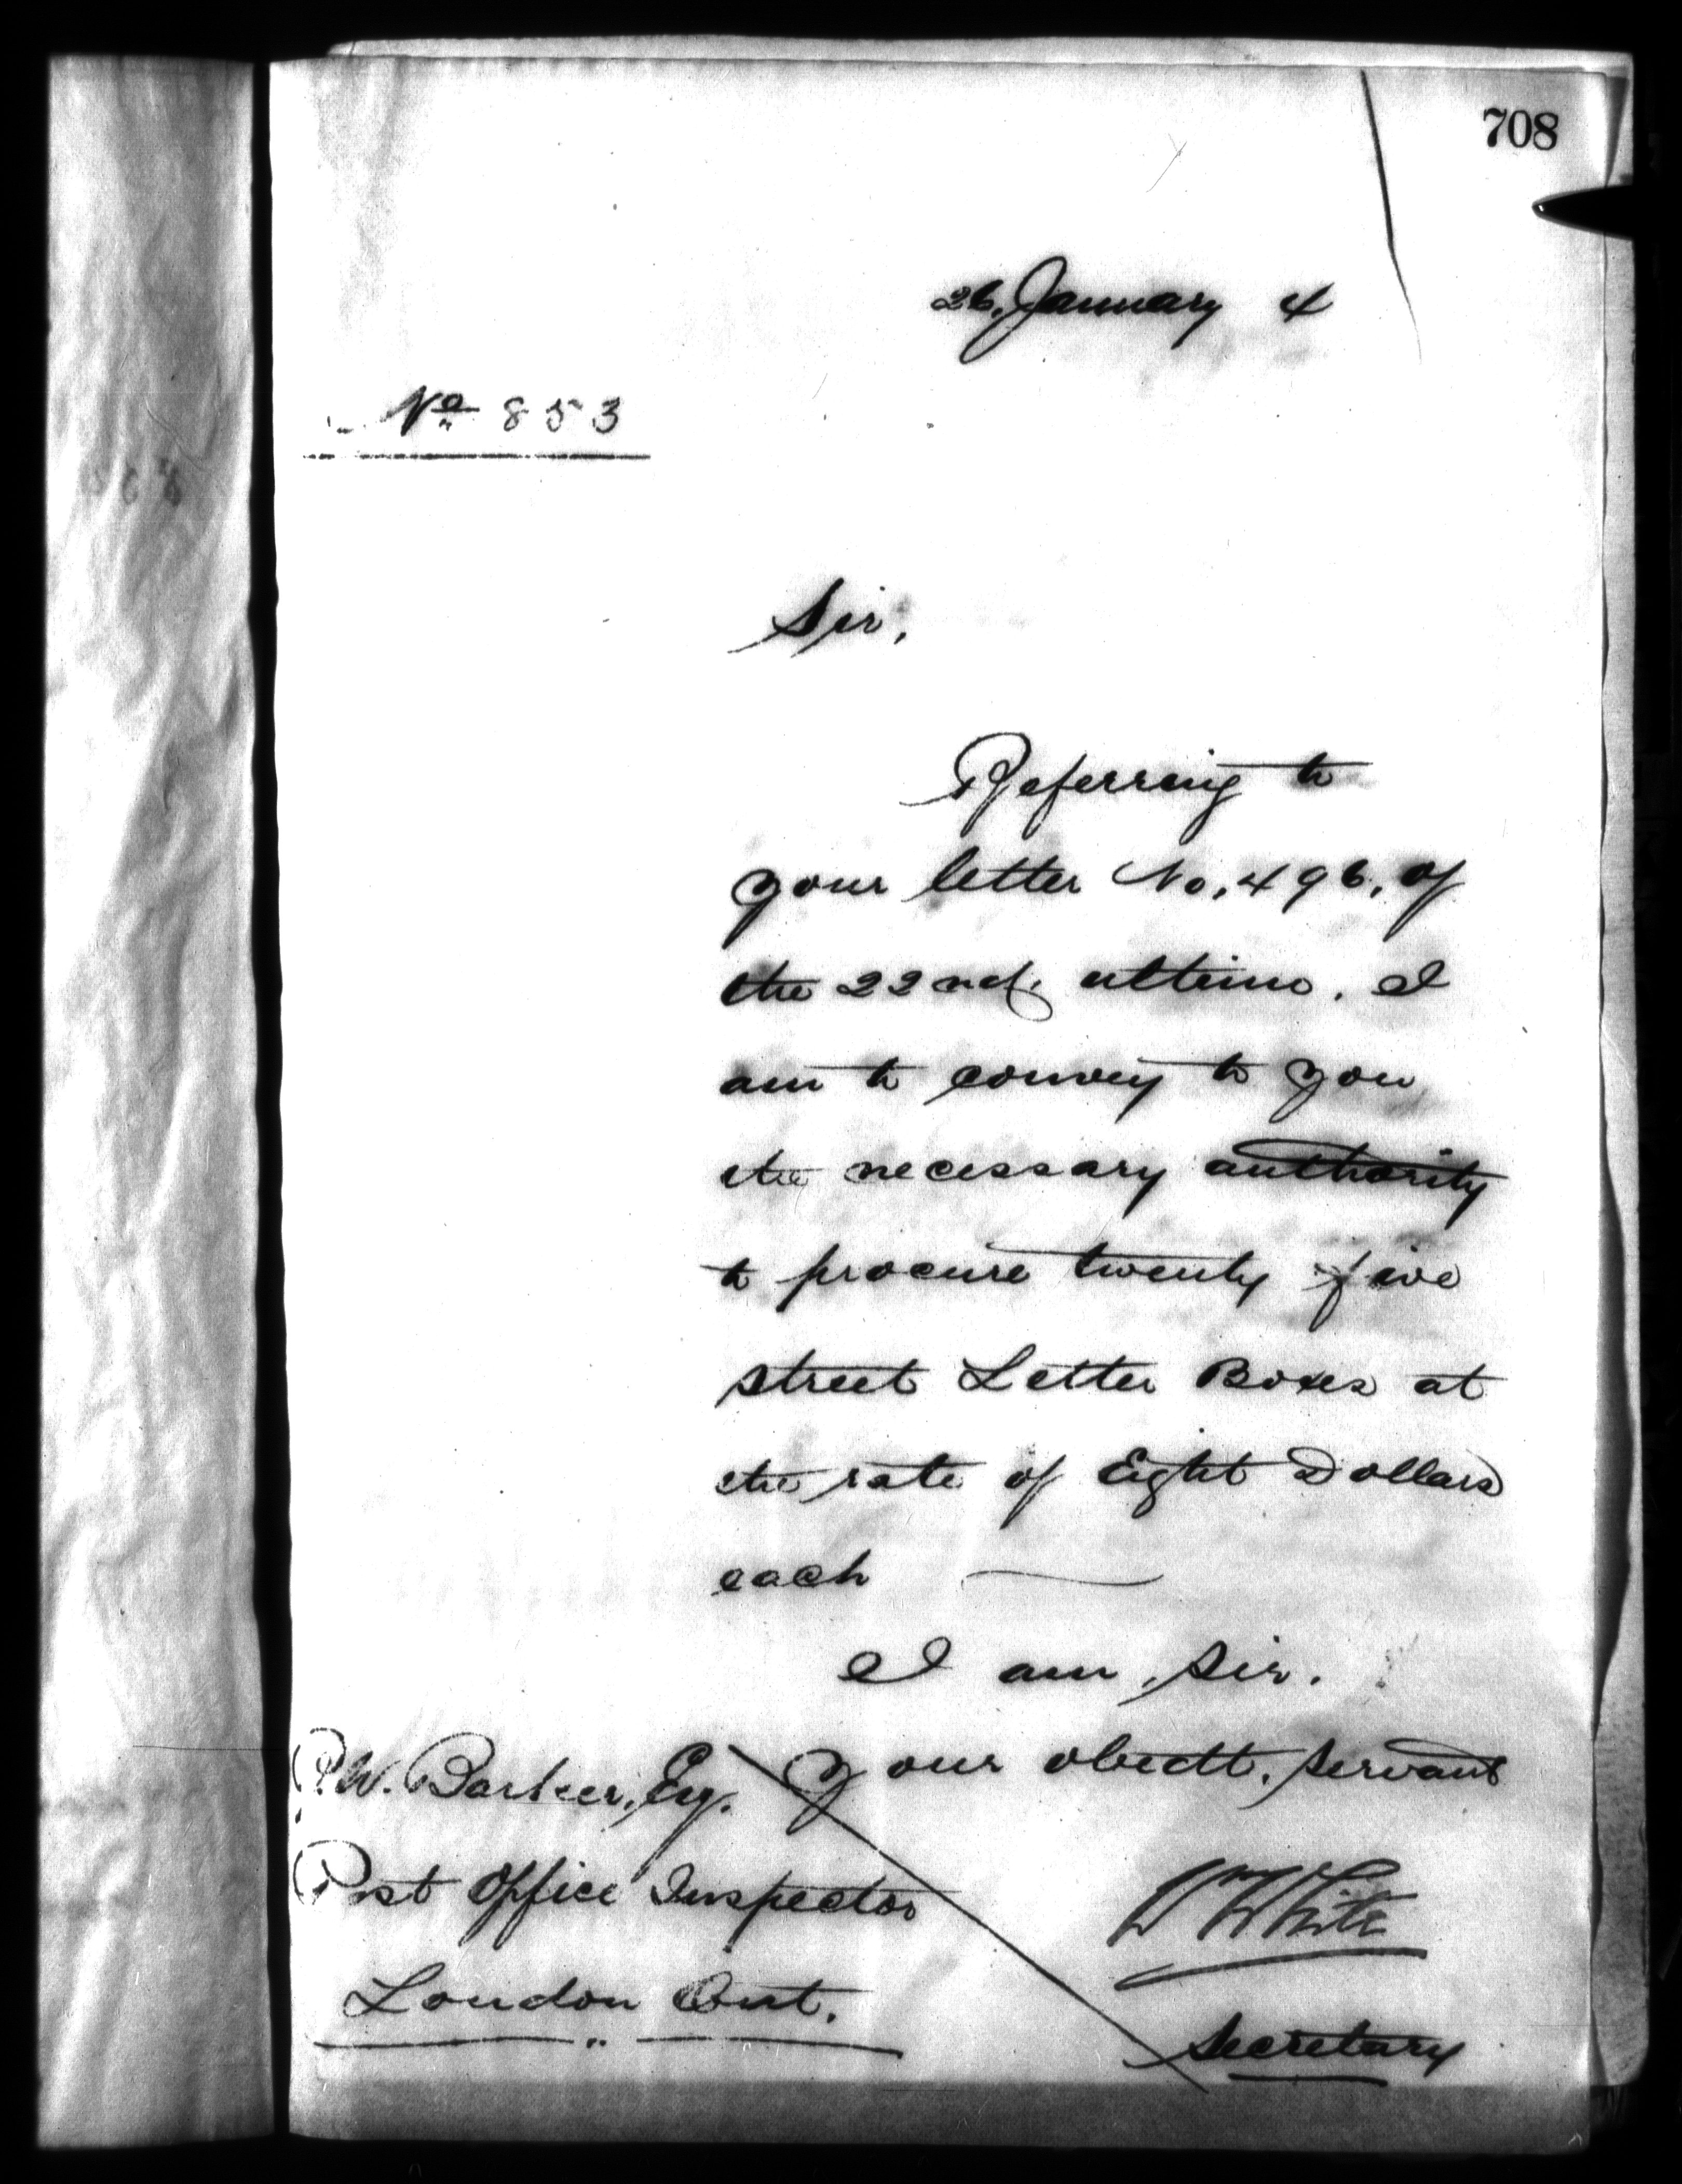 708
26, January 4
No 853
Sir,
Referring to
your letter No, 496, of
the 22nd, ultimo. I
am to convey to you
the necessary authority
to procure twenty five
street Letter Boxes at
the rate of Eight Dollars
each
I am, Sir.
Your obedt. servant
R. W. Barker, Esq.
Post Office Inspector
London Ont.
W White
Secretary